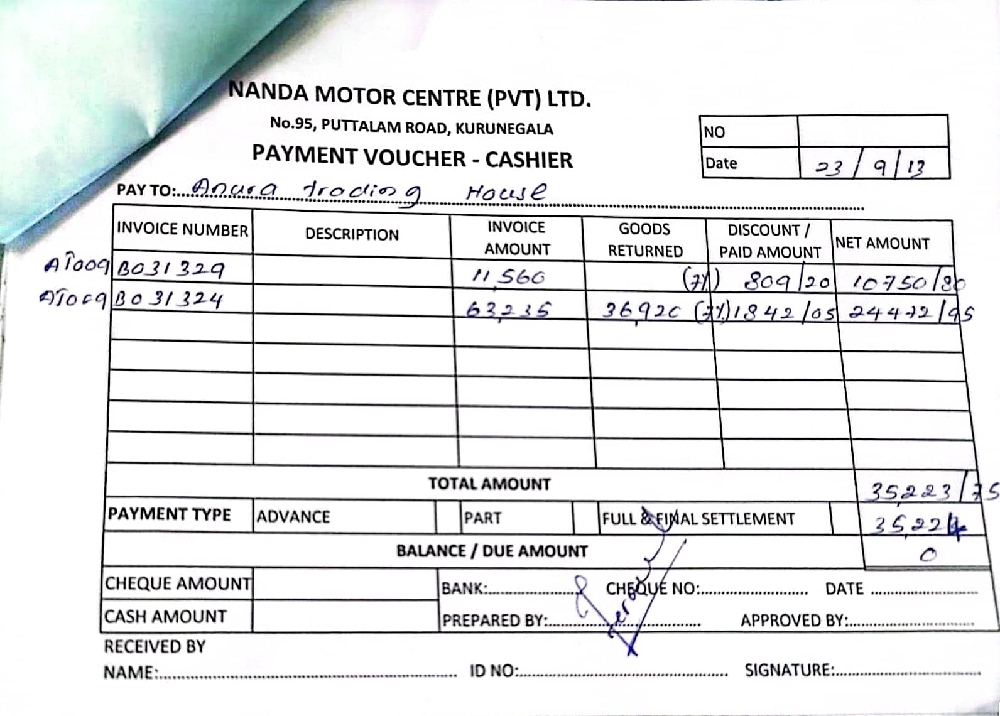 NANDA MOTOR CENTRE (PVT) LTD.
No.95, PUTTALAM ROAD, KURUNEGALA
PAYMENT VOUCHER - CASHIER
NO
Date 23/9/13
PAY TO:..Anura trading House
INVOICE NUMBER DESCRIPTION INVOICE AMOUNT GOODS RETURNED DISCOUNT / PAID AMOUNT NET AMOUNT
AT009 B031329 11,560 (7%) 809/20 10750/80
AT009 B031324 63,235 36,920 (7%) 1842/05 24472/95
TOTAL AMOUNT 35,223/75
PAYMENT TYPE ADVANCE PART FULL & FINAL SETTLEMENT 35,224
BALANCE / DUE AMOUNT 0
CHEQUE AMOUNT BANK: CHEQUE NO: DATE
CASH AMOUNT PREPARED BY: APPROVED BY:
RECEIVED BY
NAME: ID NO: SIGNATURE: